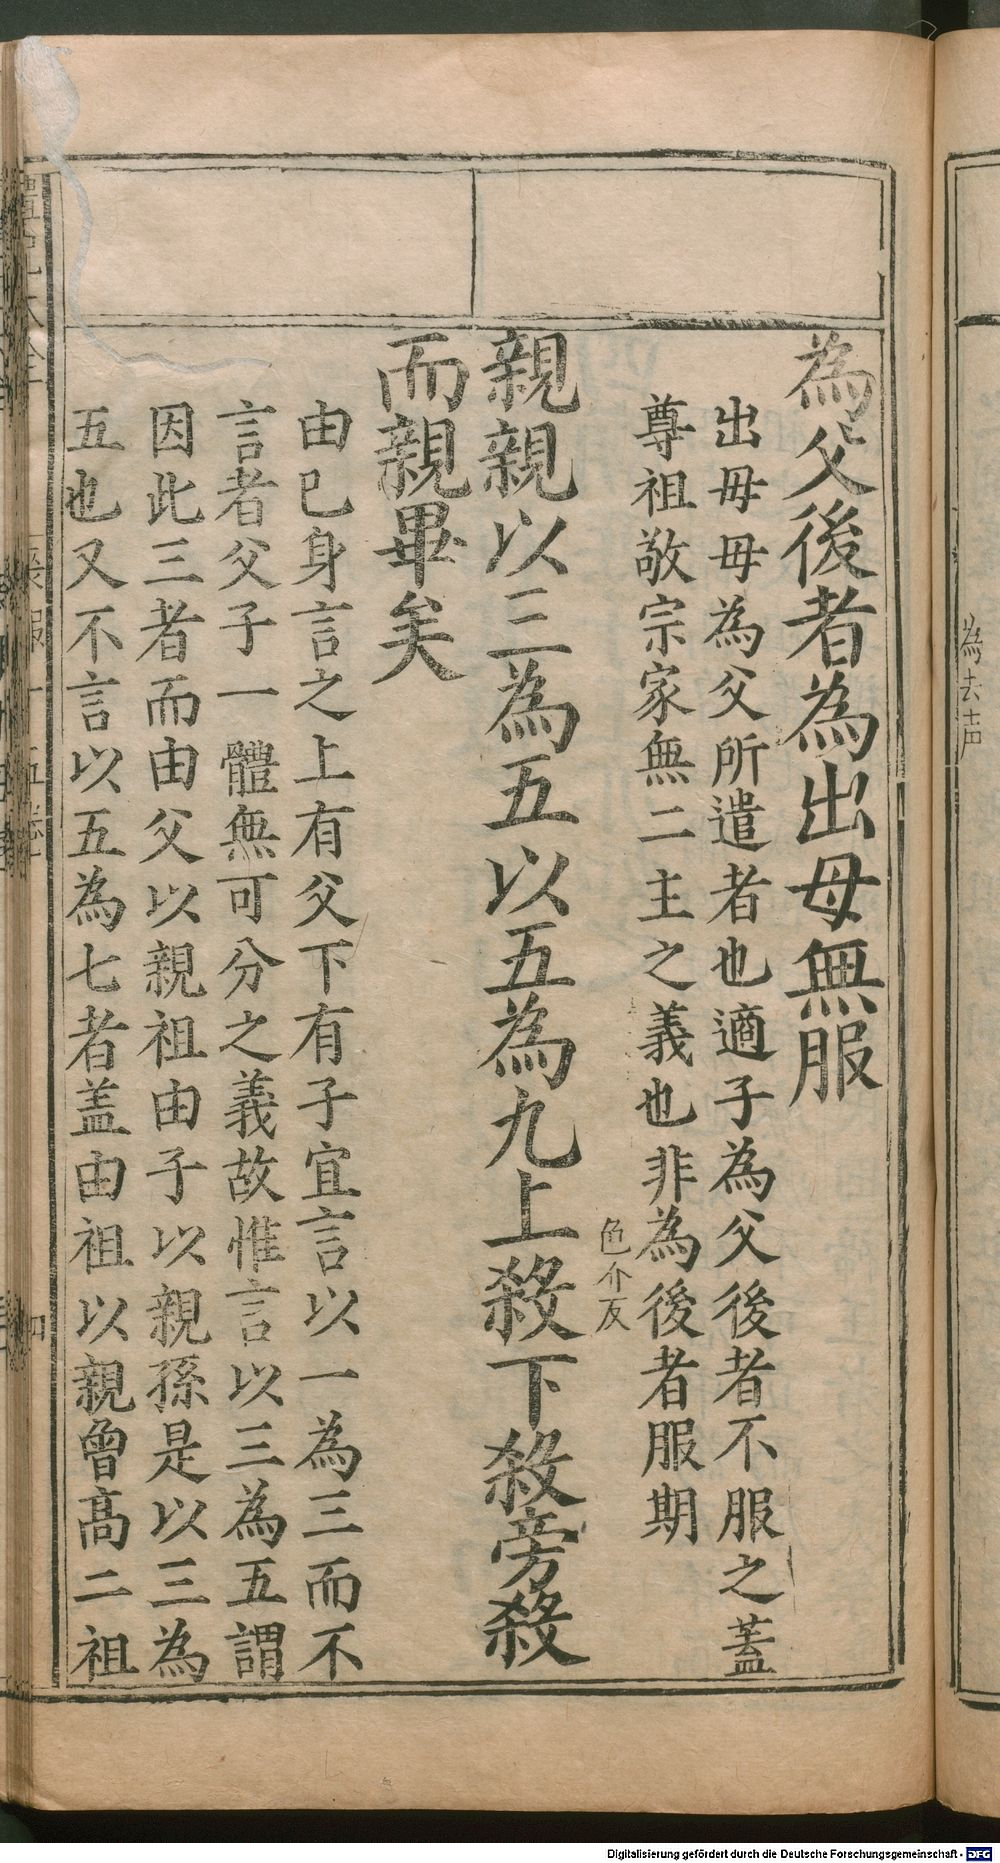 為父後者為出母無服
出母母為父所遣者也適子為父後者不服之蓋
尊祖敬宗家無二主之義也非為後者服期
色介反
親親以三為五以五為九上殺下殺旁殺
而親畢矣
由己身言之上有父下有子宜言以一為三而不
言者父子一體無可分之義故惟言以三為五謂
因此三者而由父以親祖由子以親孫是以三為
五也又不言以五為七者盖由祖以親曾髙二祖
為去声
Digitalisierung gefördert durch die Deutsche Forschungsgemeinschaft - DFG